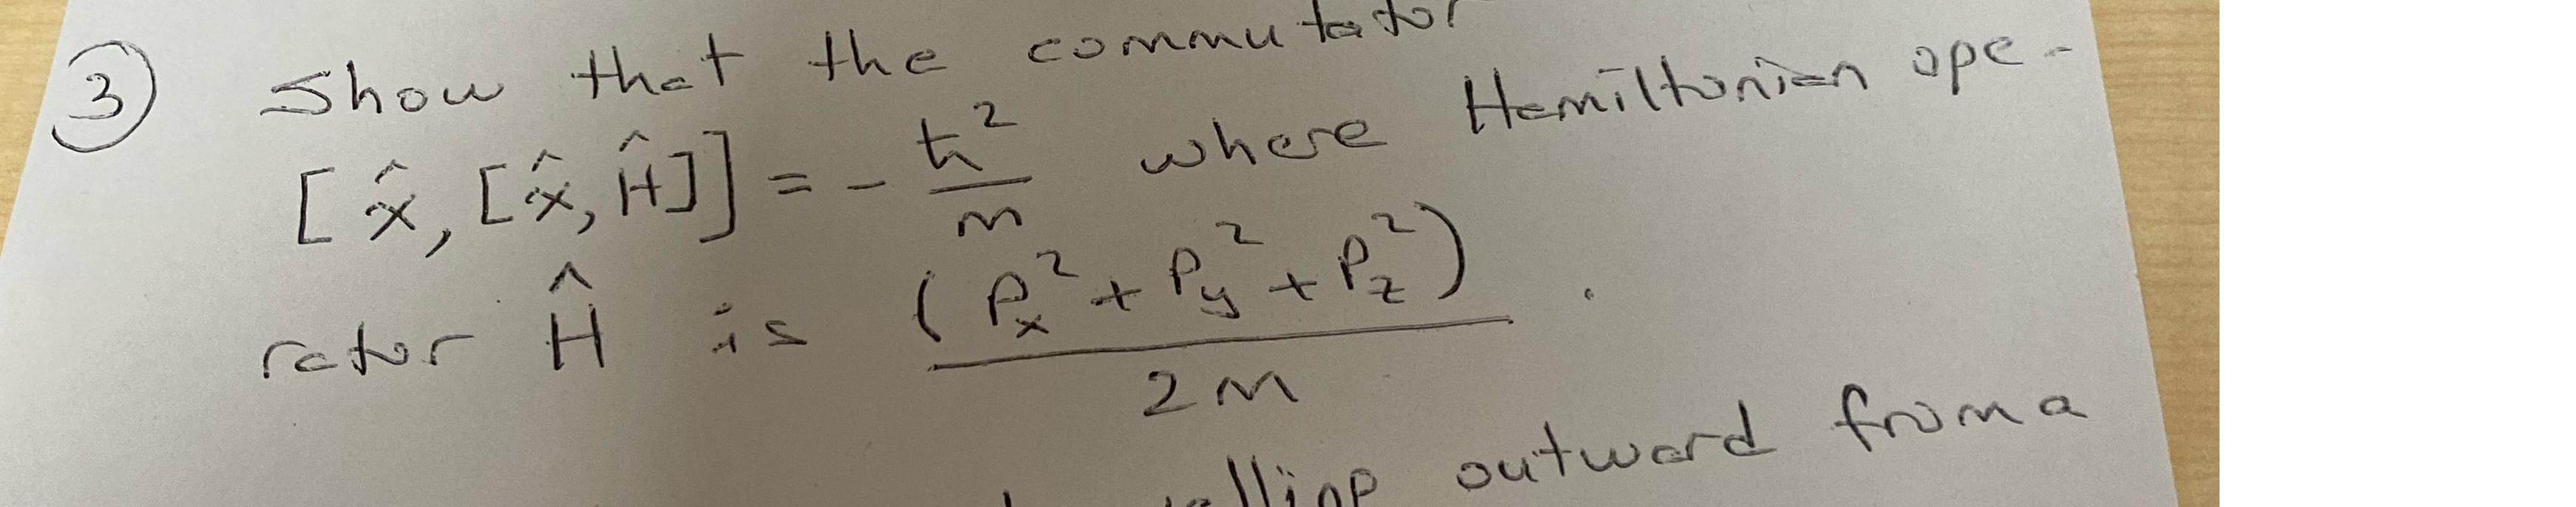 ③ Show that the commutator
[x̂, [x̂, Ĥ]] = - ħ²/m where Hamiltonian ope-
rator Ĥ is (Px² + Py² + Pz²)/2m .
outward from a